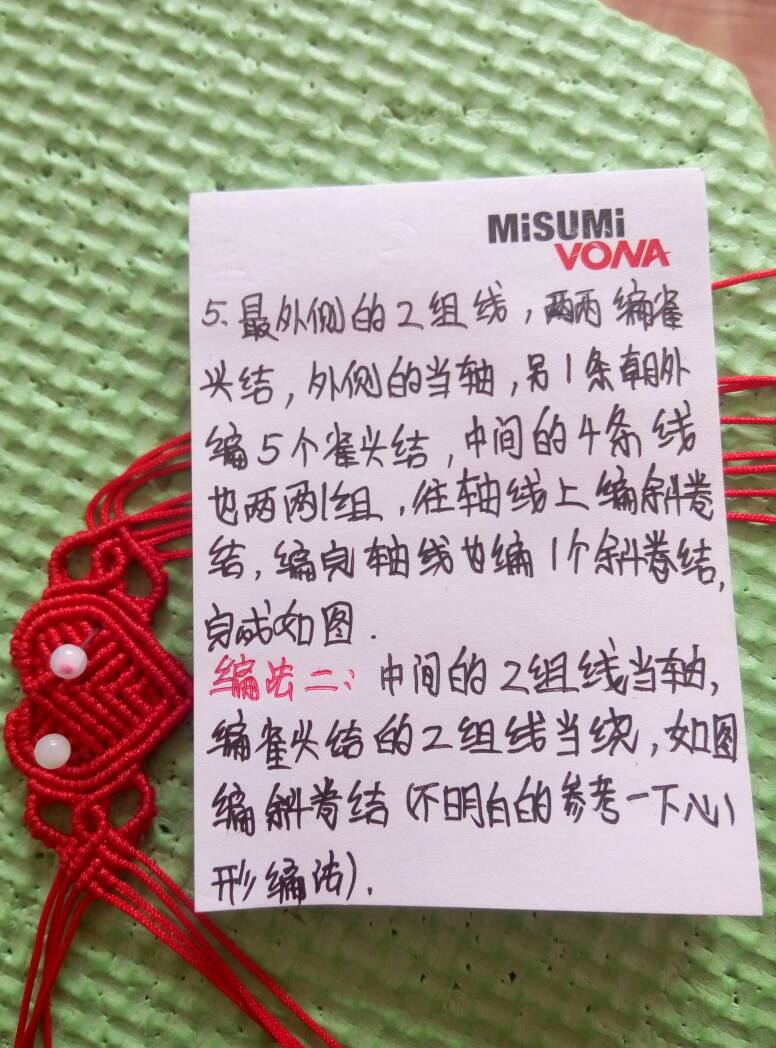 MiSUMi
VONA
5、最外侧的2组线，两两编雀
头结，外侧的当轴，另1条朝外
编5个雀头结，中间的4条线
也两两1组，往轴线上编斜卷
结，编完轴线也编1个斜卷结，
完成如图.
编法二：中间的2组线当轴，
编雀头结的2组线当绕，如图
编斜卷结（不明白的参考一下心
形编法）.